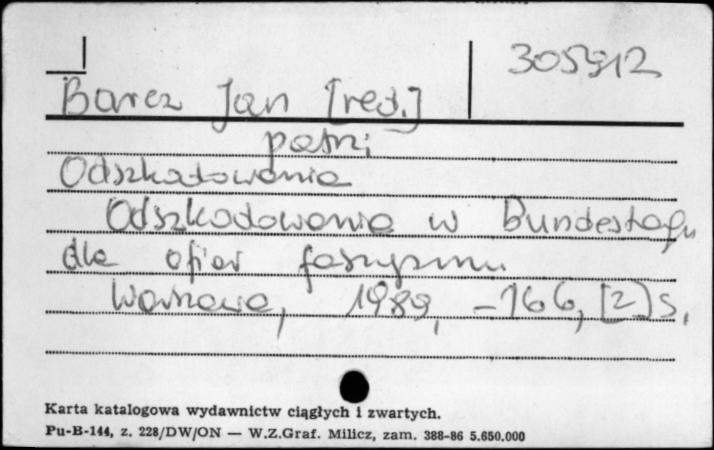 305912
Barcz Jan [red.]
patrz
Odszkodowania
Odszkodowania w Bundestagu
dla ofiar faszyzmu
Warszawa, 1989, - 166, [2] s.
Karta katalogowa wydawnictw ciągłych i zwartych.
Pu-B-144, z. 228/DW/ON — W.Z.Graf. Milicz, zam. 388-86 5.650.000